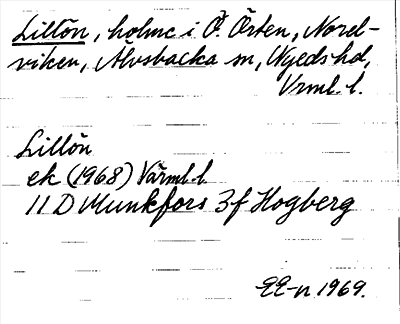 Lillön, holme i Ö. Örten, Nord-
viken, Älvsbacka sn, Nyeds hd,
Vrml. l.
Lillön
ek (1968) Värml. l.
11 D Munkfors 3f Hogberg
EE-n 1969.